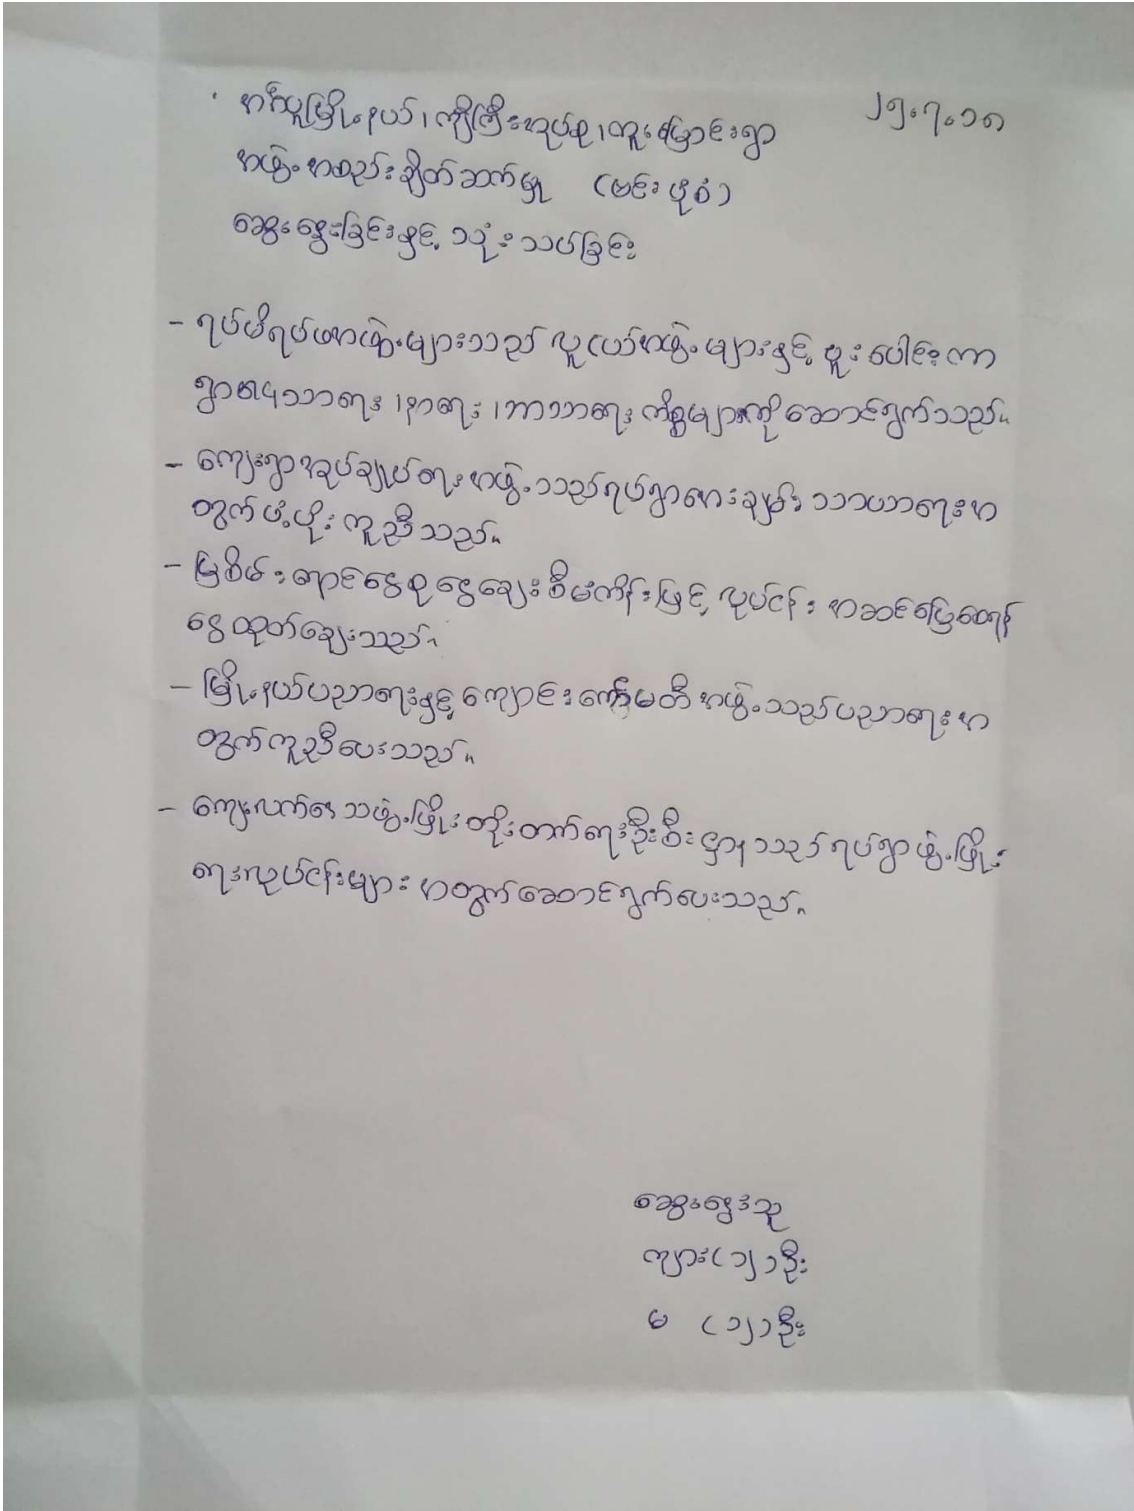 အင်္ဂပူမြို့နယ်၊ ကျီကြီးအုပ်စု၊ ကူးမြောင်းရွာ ၂၅.၇.၁၈
အဖွဲ့အစည်းချိတ်ဆက်မှု (မင်းဖုံစံ)
ဆွေးနွေးခြင်းနှင့် သုံးသပ်ခြင်း
- ရပ်မိရပ်ဖအဖွဲ့များသည် လူငယ်အဖွဲ့များနှင့် ပူးပေါင်းကာ
ရွာစေ့သာရေး၊ နာရေး၊ ဘာသာရေး ကိစ္စများကိုဆောင်ရွက်သည်။
- ကျေးရွာအုပ်ချုပ်ရေးအဖွဲ့သည်ရပ်ရွာအေးချမ်းသာယာရေးအ
တွက်ပံ့ပိုးကူညီသည်။
- မြစိမ်းရောင်ငွေစုငွေချေးစီမံကိန်းဖြင့် လုပ်ငန်းအဆင်ပြေစေရန်
ငွေထုတ်ချေးသည်။
- မြို့နယ်ပညာရေးနှင့် ကျောင်းကော်မတီအဖွဲ့သည်ပညာရေးအ
တွက်ကူညီပေးသည်။
- ကျေးလက်ဒေသဖွံ့ဖြိုးတိုးတက်ရေးဦးစီးဌာနသည်ရပ်ရွာဖွံ့ဖြိုး
ရေးလုပ်ငန်းများအတွက်ဆောင်ရွက်ပေးသည်။
ဆွေးနွေးသူ
ကျား(၁၂)ဦး
မ (၁၂)ဦး